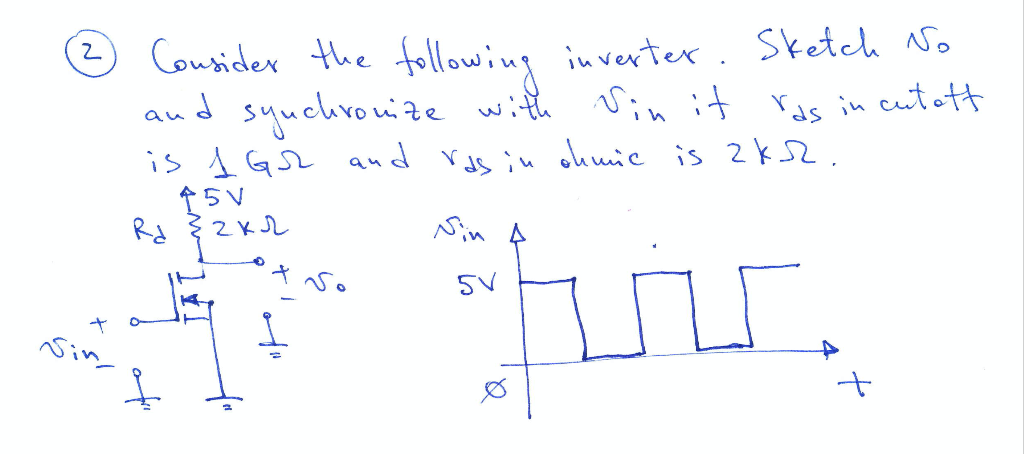 ② Consider the following inverter. Sketch vo
and synchronize with vin if rds in cutoff
is 1 GΩ and rds in ohmic is 2kΩ.
5V
Rd 2kΩ
+ vo -
+ vin -
vin
5V
0
t